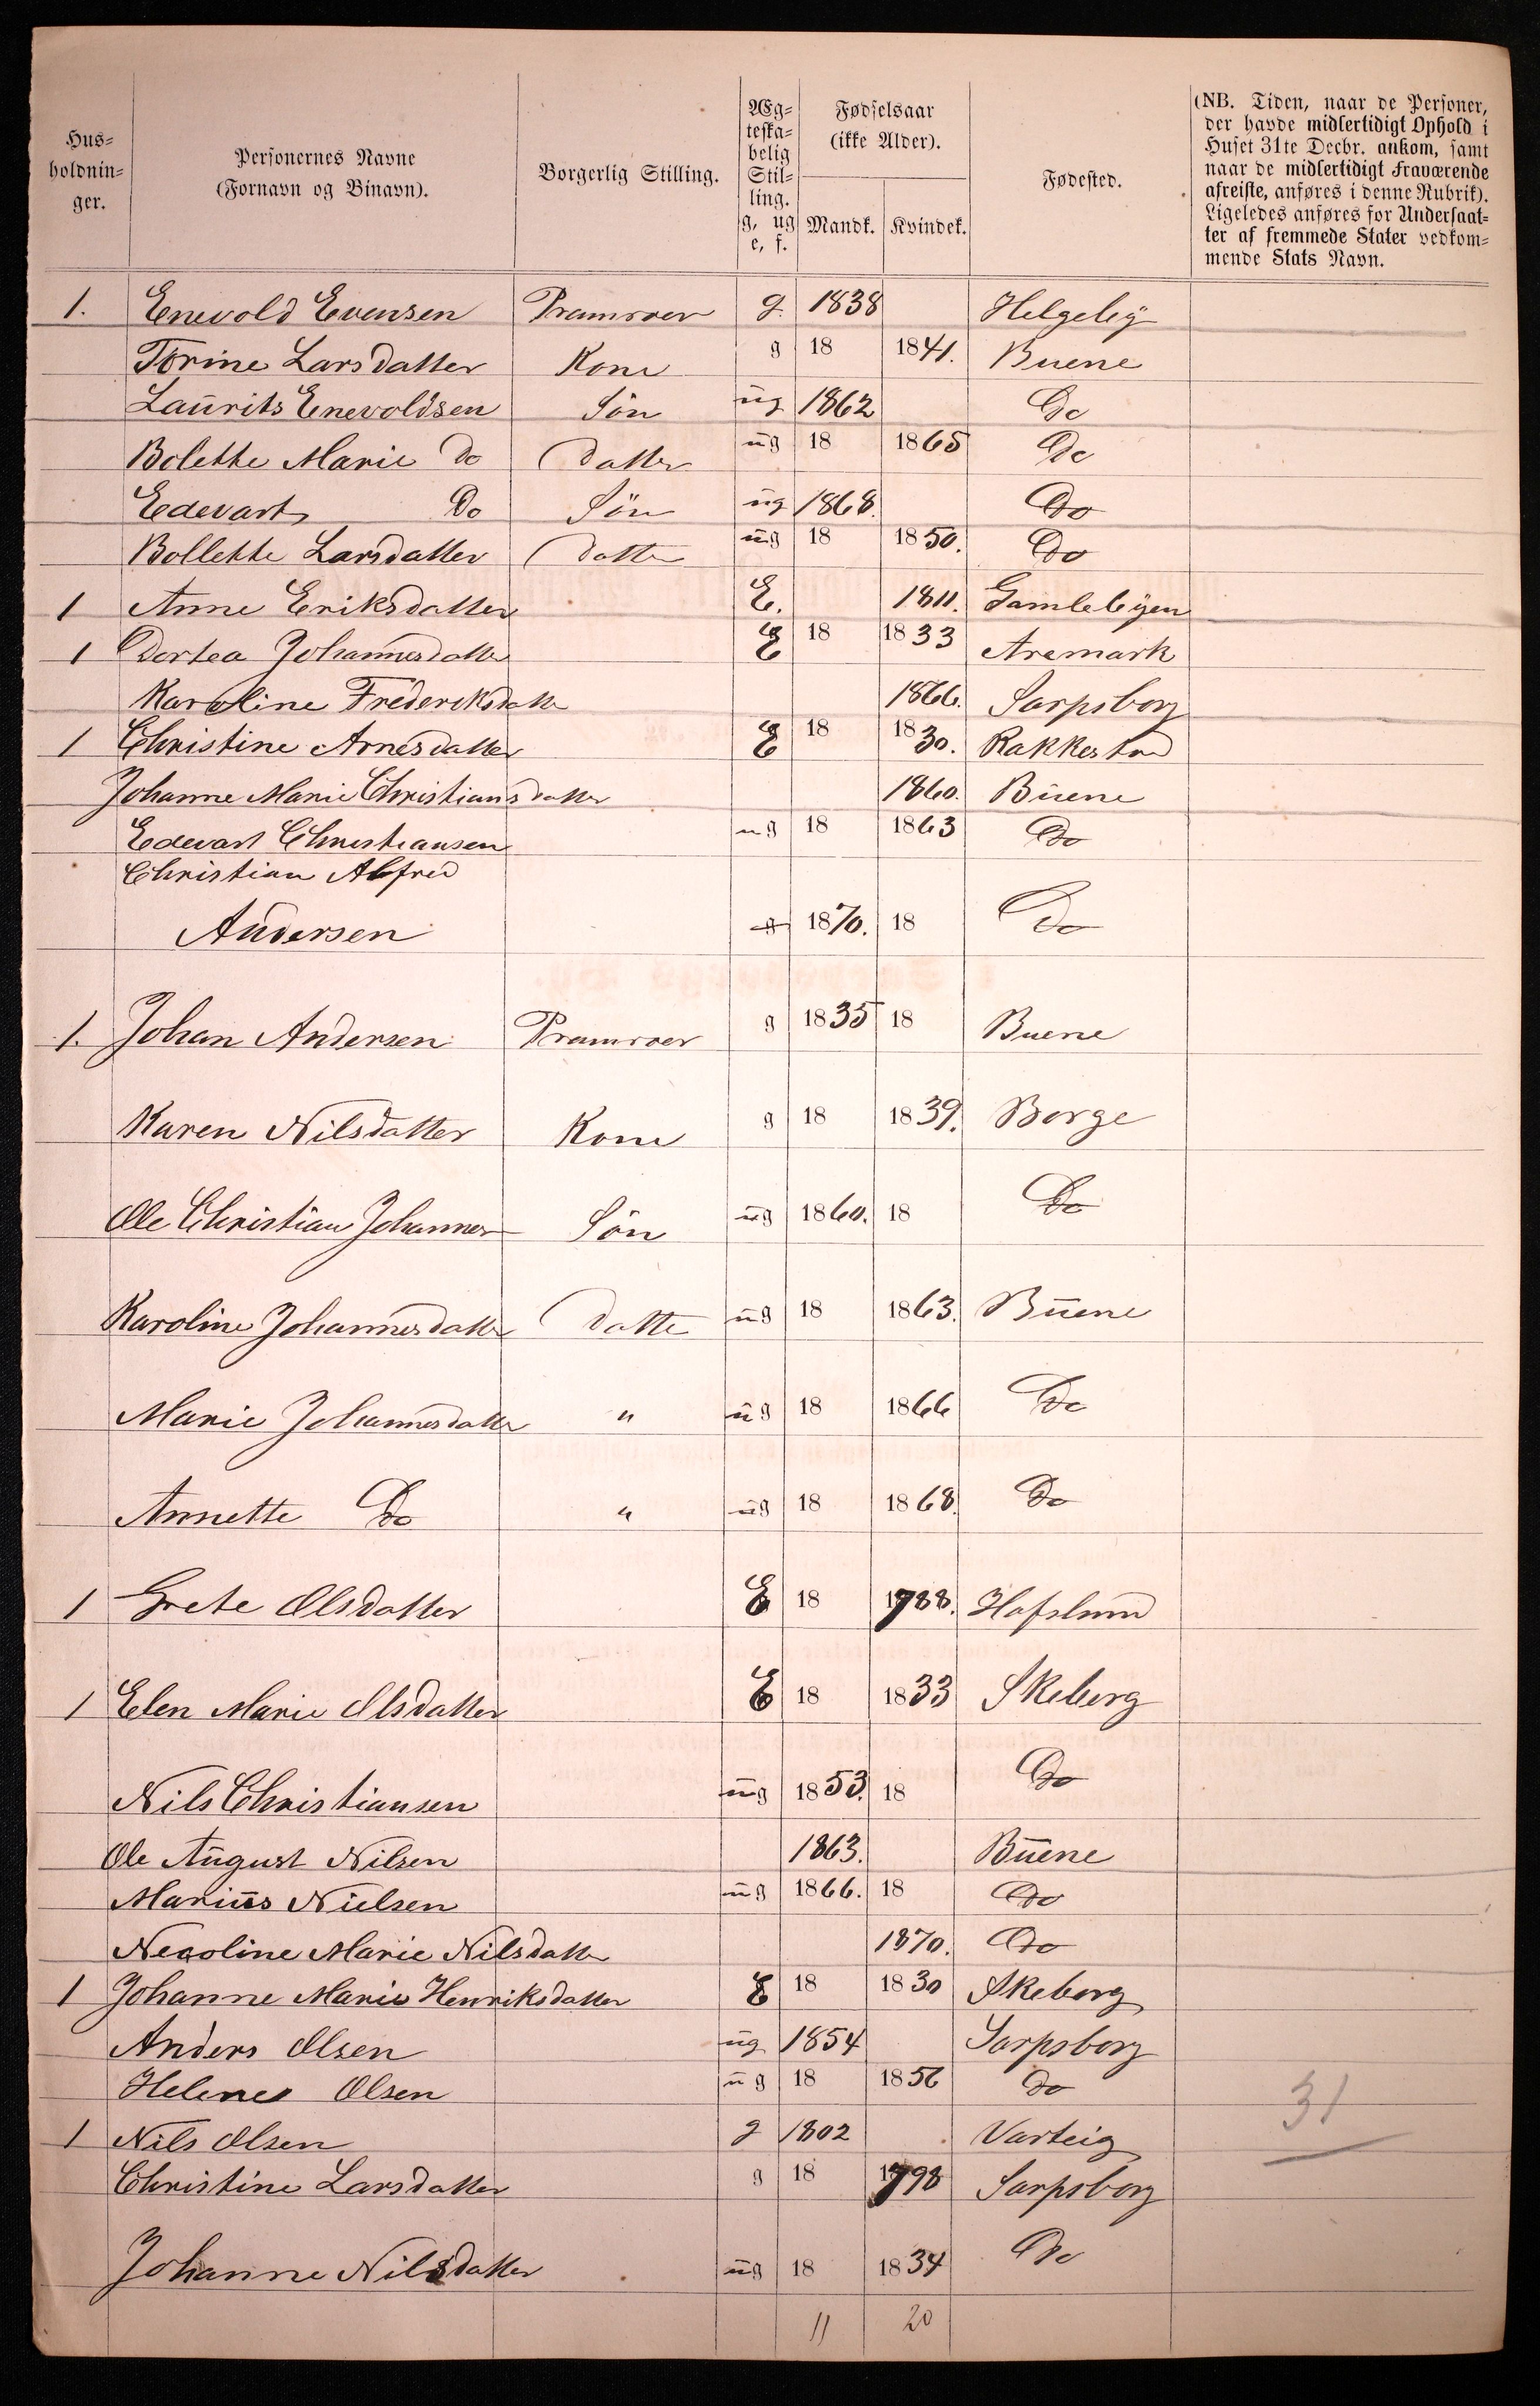 Hus=
holdnin=
ger.
Personernes Navne
(Fornavn og Binavn).
Borgerlig Stilling.
Æg=
teska=
belig
Stil=
ling.
g, ug
e, f.
Fødselsaar
(ikke Alder).
Mandk. Kvindek.
Fødested.
(NB. Tiden, naar de Personer,
der havde midlertidigt Ophold i
Huset 31te Decbr. ankom, samt
naar de midlertidigt Fraværende
afreiste, anføres i denne Rubrik).
Ligeledes anføres for Undersaat=
ter af fremmede Stater vedkom=
mende Stats Navn.
1. Enevold Evensen Pramroer g. 1838 Helgebÿ
Torine Larsdatter Kone g 18 1841. Buene
Laurits Enevoldsen Sön ug 1862 Do
Bolette Marie Do Datter ug 18 1865 Do
Edevart Do Sön ug 1868. Do
Bollette Larsdatter Datter ug 18 1850. Do
1 Anne Eriksdatter E. 1811. Gamlebÿen
1 Dortea Johannesdatter E 18 1833 Aremark
Karoline Fredercksdatter 1866. Sarpsborg
1 Christine Arnesdatter E 18 1830. Rakkestad
Johanne Marie Christiansdatter 1860. Buene
Edevart Christiansen ug 18 1863 Do
Christian Alfred
Andersen g 1870. 18 Do
1. Johan Andersen Pramroer g 1835 18 Buene
Karen Nilsdatter Kone g 18 1839. Borge
Ole Christian Johannes Sön ug 1860. 18 Do
Karoline Johannesdatter Datter ug 18 1863. Buene
Marie Johannesdatter " ug 18 1866 Do
Annette Do " ug 18 1868. Do
1 Grete Olsdatter E 18 1788. Hafslund
1 Elen Marie Olsdatter E 18 1833 Skeberg
Nils Christiansen ug 1853. 18 Do
Ole August Nilsen 1863. Buene
Marius Nielsen ug 1866. 18 Do
Necoline Marie Nilsdatter 1870. Do
1 Johanne Marie Henriksdatter E 18 1830 Skeberg
Anders Olsen ug 1854 Sarpsborg
Helene Olsen ug 18 1856 do
31
1 Nils Olsen g 1802 Varteig
Christine Larsdatter g 18 1798 Sarpsborg
Johanne Nilsdatter ug 18 1834 Do
11 20